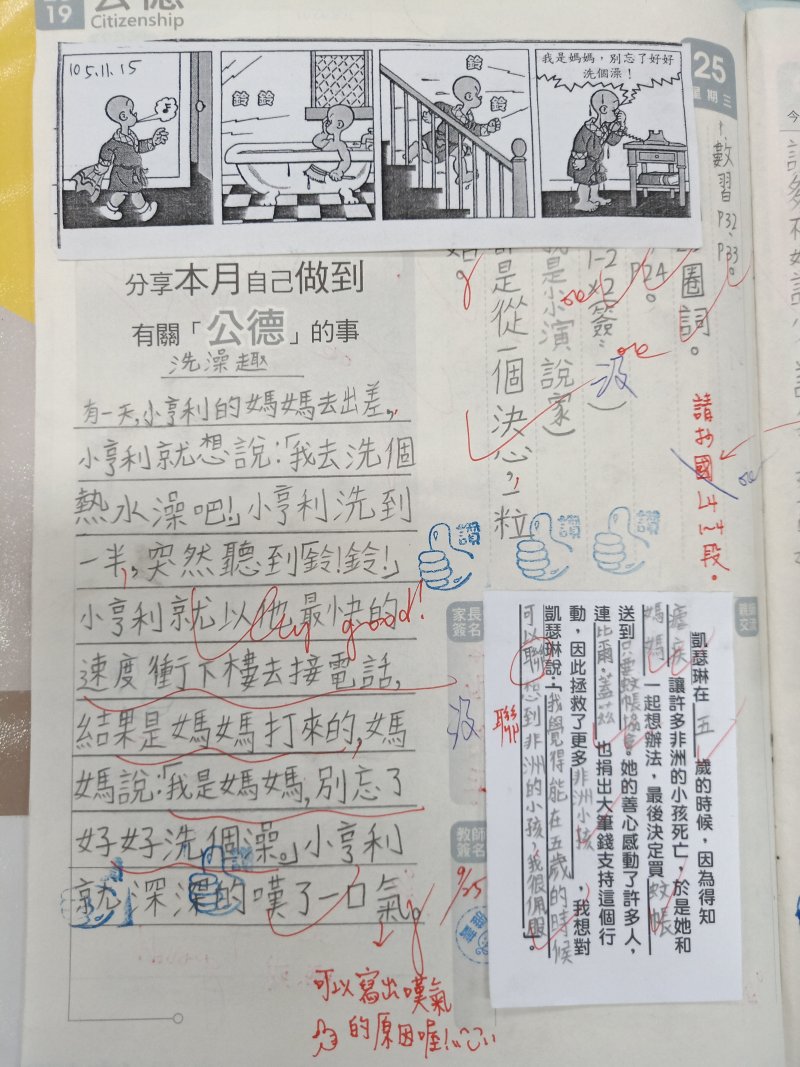 19
公德
Citizenship
105.11.15
鈴 鈴
鈴
鈴
我是媽媽，別忘了好好
洗個澡！
25
星期三
分享本月自己做到
有關「公德」的事
洗澡趣
有一天,小亨利的媽媽去出差,
小亨利就想說:「我去洗個
熱水澡吧!」小亨利洗到
一半,突然聽到「鈴!鈴!」
小亨利就以他最快的
速度衝下樓去接電話,
結果是媽媽打來的,媽
媽說:「我是媽媽,別忘了
好好洗個澡。」小亨利
就深深的嘆了一口氣。
very good!
可以寫出嘆氣
的原因喔!
數習P32、P33。
圈詞。
P24。
1-2
是小小演說家)
是從一個決心,一粒
請抄國L4 1~4段。
讚
家長簽名
教師簽名
9/25
凱瑟琳在五歲的時候，因為得知
瘧疾讓許多非洲的小孩死亡，於是她和
媽媽一起想辦法，最後決定買蚊帳
送到只要蚊帳協會。她的善心感動了許多人，
連比爾.蓋茲也捐出大筆錢支持這個行
動，因此拯救了更多非洲小孩，我想對
凱瑟琳說：「我覺得能在五歲的時候
可以聯想到非洲的小孩,我很佩服」。
聯